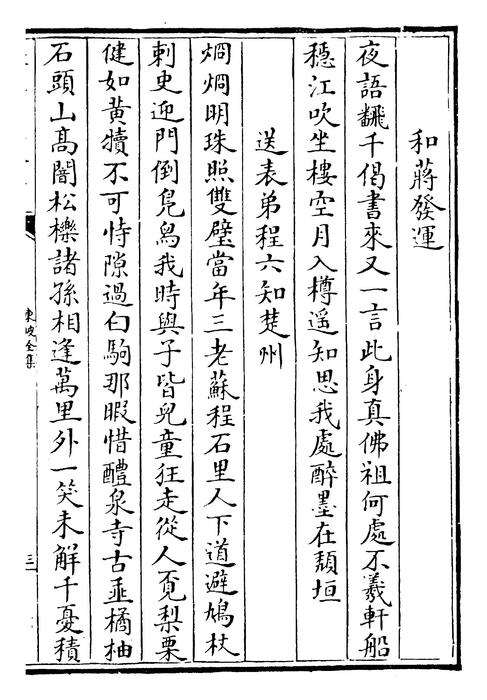 和蔣發運
夜語飜千偈書來又一言此身真佛祖何處不羲軒船
穩江吹坐樓空月入樽遥知思我處醉墨在頽垣
送表弟程六知楚州
烱烱明珠照雙璧當年三老蘇程石里人下道避鳩杖
刺史迎門倒鳬舄我時與子皆兒童狂走從人覔梨栗
健如黄犢不可恃隙過白駒那暇惜醴泉寺古垂橘柚
石頭山髙闇松櫟諸孫相逢萬里外一笑未解千憂積
東坡全集
三